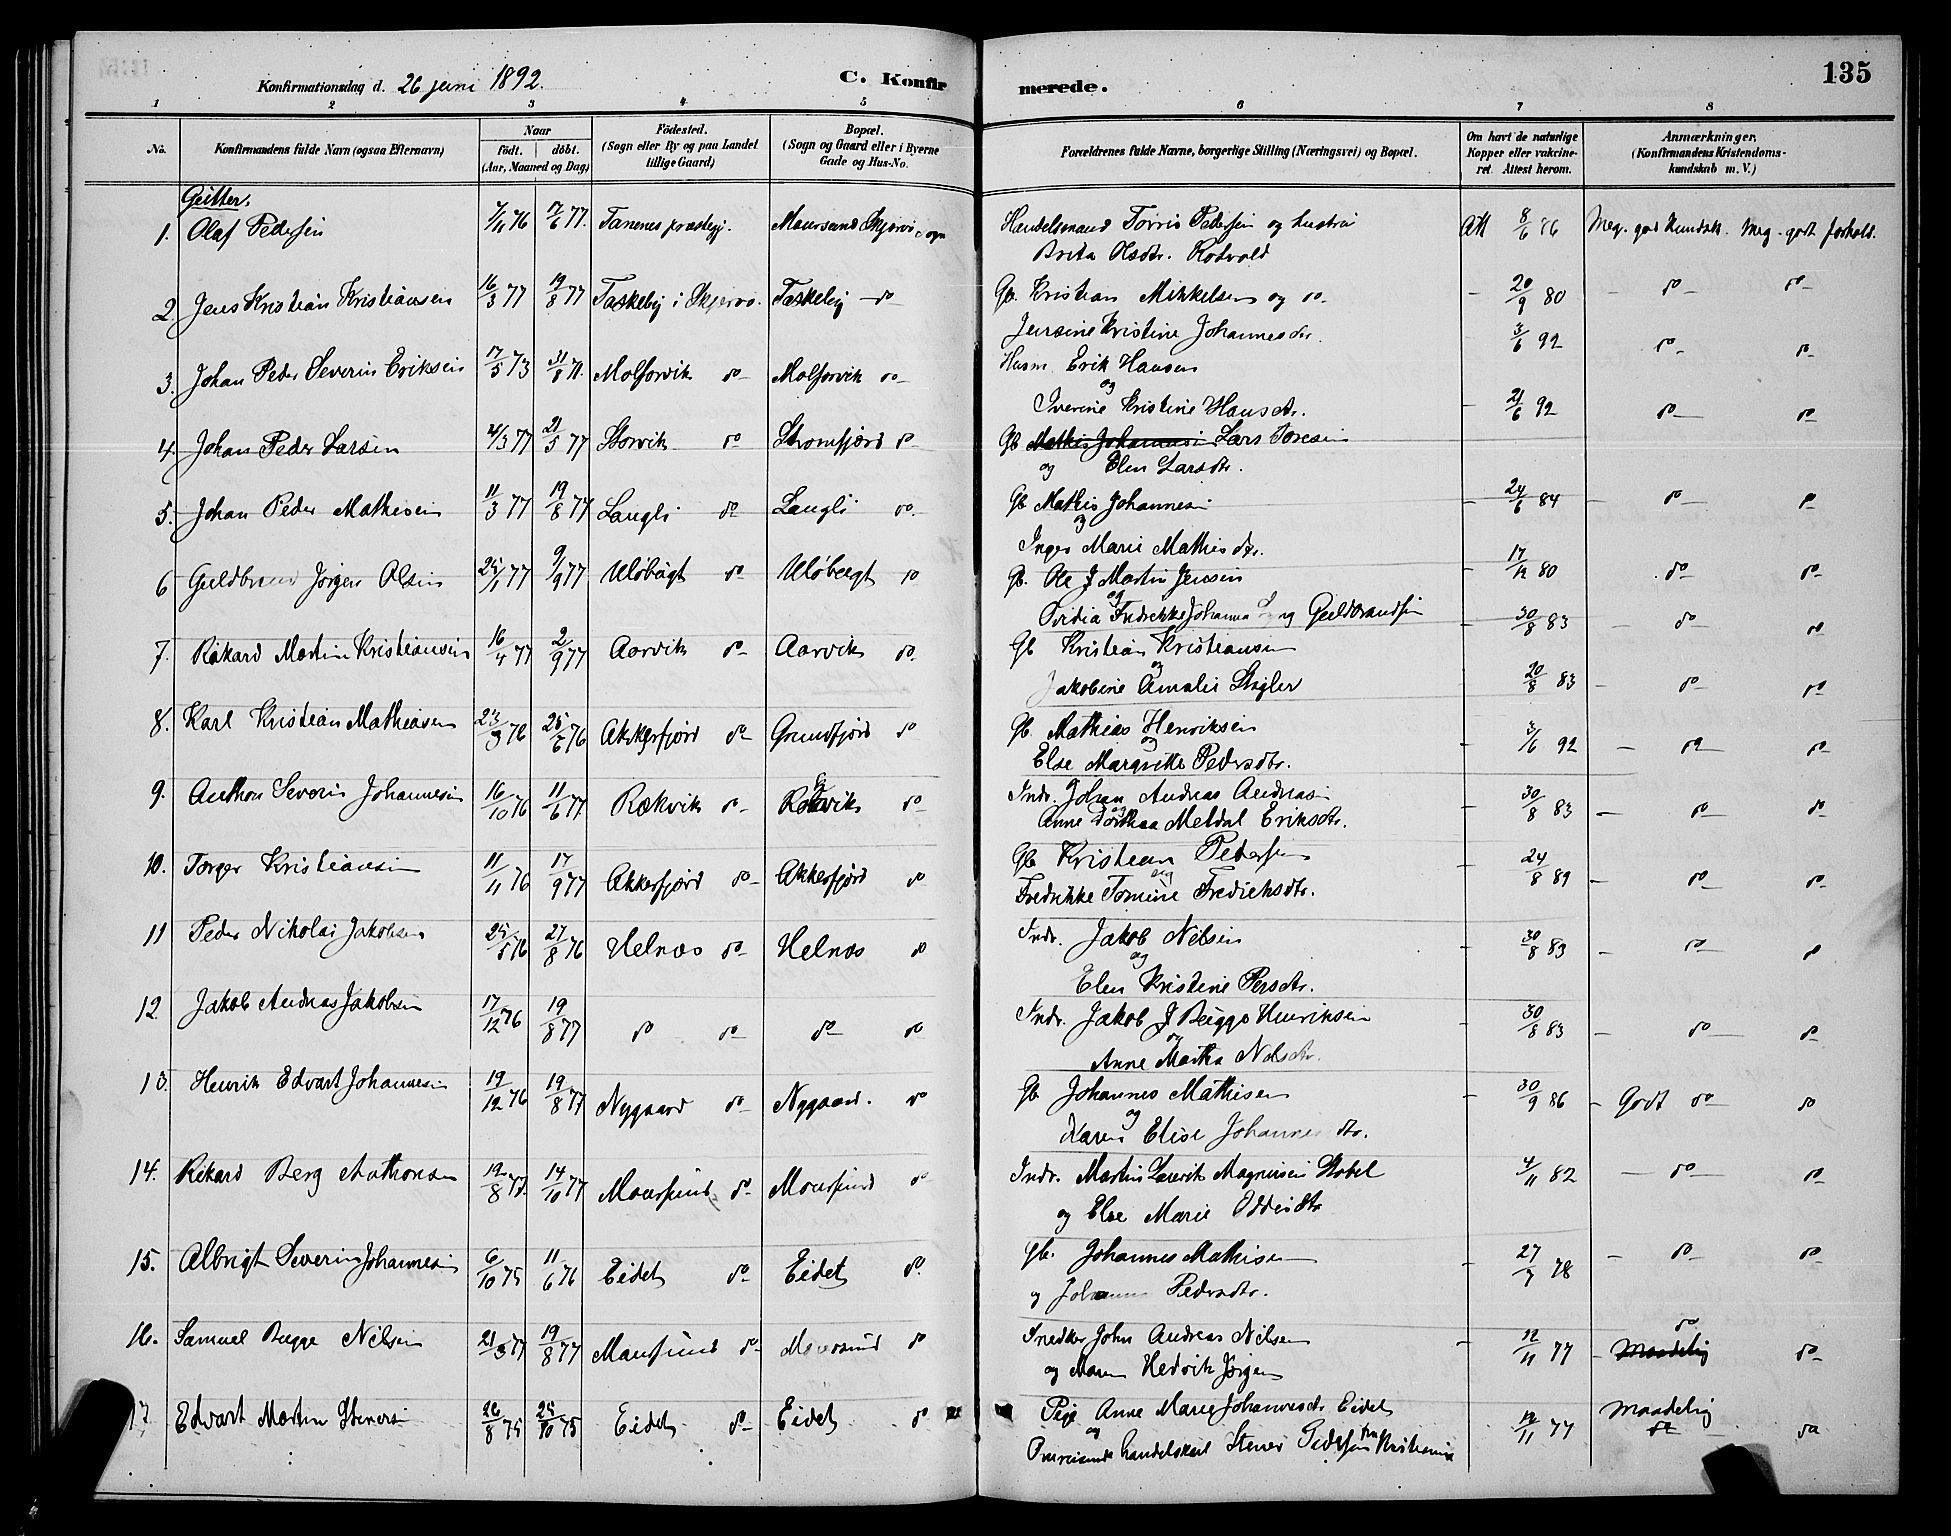 Konfirmationsdag d. 26 juni 1892. C. Konfirmerede. 135
1 2 3 4 5 6 7 8
No. Konfirmandens fulde Navn (ogsaa Efternavn) Naar födt. döbt. (Aar, Maaned og Dag) Födested. (Sogn eller By og paa Landet tillige Gaard) Bopæl. (Sogn og Gaard eller i Byerne Gade og Hus-No. Forældrenes fulde Navne, borgerlige Stilling (Næringsvei) og Bopæl. Om havt de naturlige Kopper eller vakcineret Attest herom. Anmærkninger. (Konfirmandens Kristendomskundskab m. V.)
Gutter.
1. Olaf Pedersen 7/11 76 17/6 77. Tanenes præstegj. Maursund Skjervø sogn Handelsmand Torris Pedersen og hustru Att 8/6 86 Meg. god Kundsk. Meg. godt forhold.
Brita Olsdtr. Rotvold
2. Jens Kristian Kristiansen 16/3 77 19/8 77 Taskeby i Skjervø. Taskeby do Gb. Kristian Mikkelsen og do 20/9 80 do do
Jensine Kristine Johannesdtr.
3. Johan Peder Severin Eriksen 17/5 73 31/8 71. Molforvik do Molforvik do Husm. Erik Hansen 3/6 92 do do
og
Iverine Kristine Hansdtr.
4. Johan Peder Larsen 4/3 77 21/5 77 Storvik do Stromfjord do Gb Mathis Johannesen Lars Toresen 21/6 92 do do
og Elen Larsdtr.
5. Johan Peder Mathisen 11/3 77 19/8 77 Langli do Langli do. Gb Mathis Johannesen 24/6 84 do do
og
Inger Marie Mathisdtr.
6 Guldbrand Jörgen Olsen 25/1 77 9/9 77 Uløbugt do Uløbugt do Gb. Ole J Martin Jensen 17/12 80 do do
og
Fredrikke Johanna Guldbrandsen
7. Rikard Martin Kristiansen 16/4 77 2/9 77 Aarvik do Aarvik do. Gb Kristian Kristiansen 30/8 83 do do
og
Jakobine Amalie Stigler
8. Karl Kristian Mathiasen 23/3 76 25/6 76 Akkerfjord do Grundfjord do Gb. Mathias Henriksen 20/8 83 do do
og
Else Margrethe Pedersdtr.
9. Anthon Severin Johannesen 16/10 76 11/6 77 Rækvik do Rækvik do Indr. Johan Andreas Andreasen 3/6 92 do do
og
Anne Dorthea Meldal Eriksdtr.
10. Torger Kristiansen 11/11 76 17/9 77 Akkerfjord do Akkerfjord do Gb Kristian Petersen 30/8 83 do do
og
Fredrikke Tomine Fredriksdtr. 24/8 89 do do
11 Peder Nikolai Jakobsen 25/5 76 27/8 76 Helnæs do Helnæs do Indr. Jakob Nilsen 30/8 83 do do
og
Elen Kristine Persdtr.
12. Jakob Andreas Jakobsen 17/12 76 19/8 77 do do do do Indr. Jakob J Brigge Henriksen 30/8 83 do do
og
Anne Martha Nilsdtr.
13. Henrik Edvart Johannesen 19/12 76 19/8 77 Nygaard do Nygaard. do Gb Johannes Mathisen 30/9 86 Godt do do
og
Karen Elise Johannesdtr.
14. Rikard Berg Anthonsen 19/8 77. 14/10 77 Maursund do Maursund do Indr. Martin Laurits Magnusen Stobel 4/11 82 do do
og Else Marie Oddesdtr
15. Albrigt Severin Johannesen 6/10 75 11/6 76 Eidet do Eidet do. Gb. Johannes Mathisen 27/7 78 do do
og Johanna Pedersdtr.
16. Samuel Bugge Nilsen 21/3 77 19/8 77 Maursund do Maursund do Snedker John Andreas Nilsen 12/11 77 Maadelig do do
og Maren Hedvik Jörgens
17. Edvart Martin Stenersen 26/8 75 24/10 75 Eidet do Eidet do Pige Anne Marie Johannesdtr Eidet 12/11 77 Maadelig do do
og
Omreisende handelskarl Stener Pedersen fra Kristiania